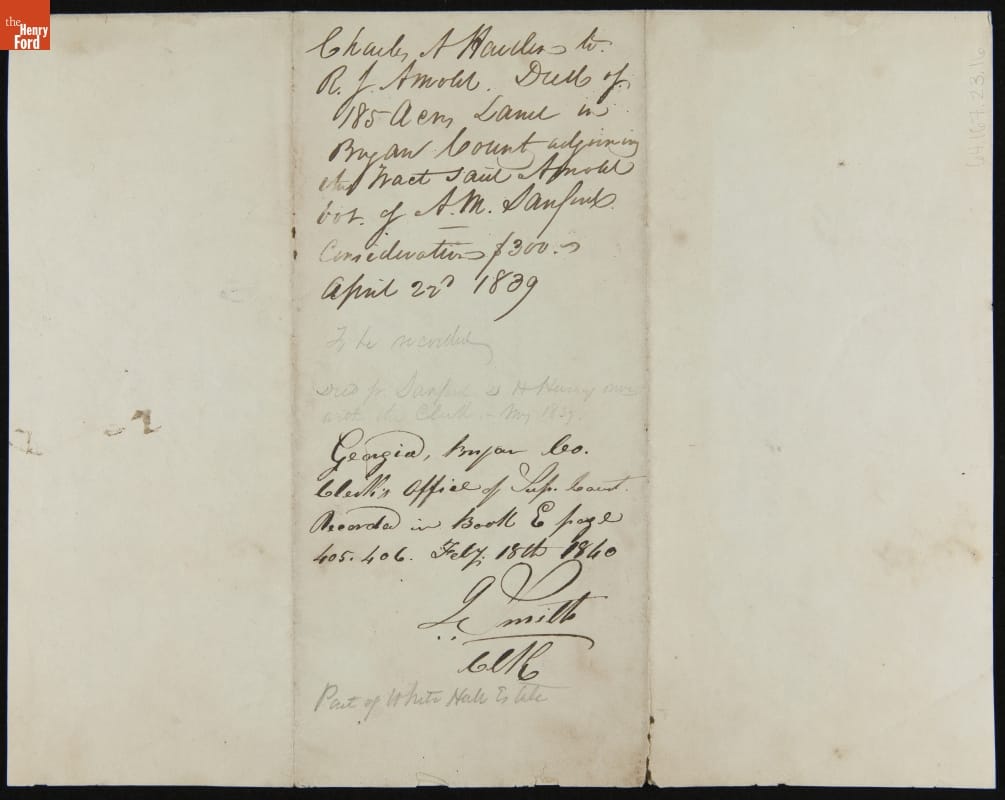 the
Henry
Ford
64.167.23.16
Charles A Harden to
R. J. Arnold. Deed of
185 Acres Land in
Bryan Count adjoining
the Tract said Arnold
bot. of A. M. Sanford.
Consideration $300.
April 22d 1839
To be recorded
Deed fr Sanford
with the Clerk May 1839.
Georgia, Bryan Co.
Clerk's Office of Sup. Court.
Recorded in Book E page
405. 406. Feby. 18th 1840
Smith
Clk
Part of White Hall Estate